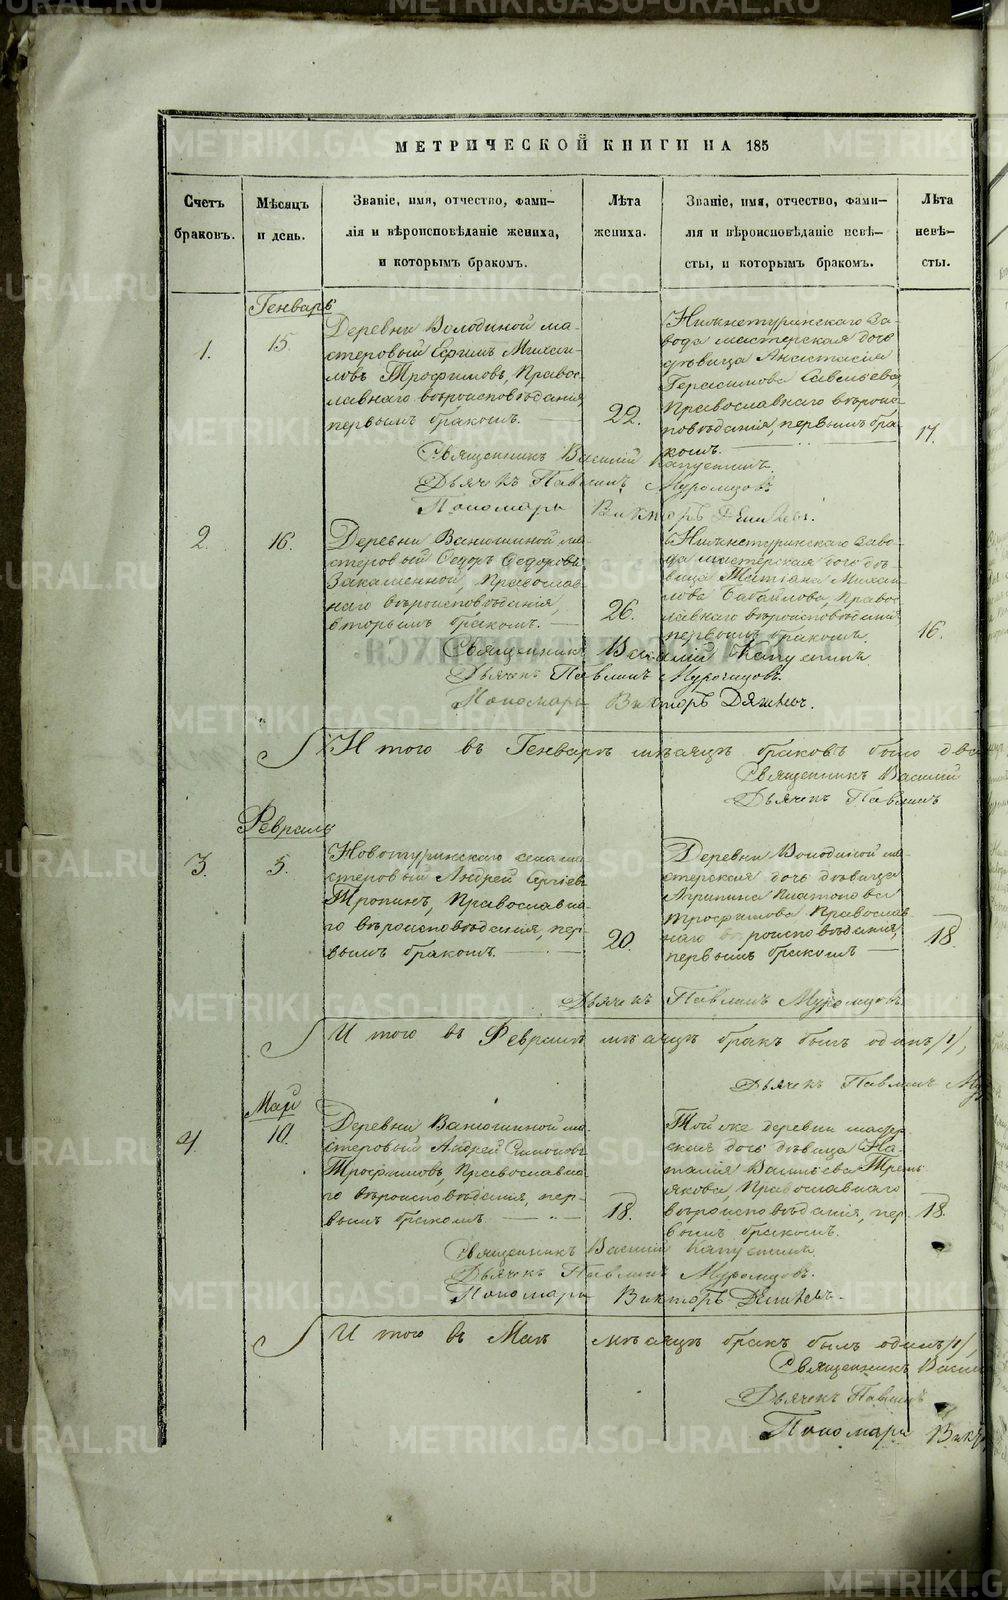 МЕТРИЧЕСКОЙ КНИГИ НА 185
Счетъ браковъ.
Мѣсяцъ и день.
Званіе, имя, отчество, фами-
лія и вѣроисповѣданіе жениха,
и которымъ бракомъ.
Лѣта жениха.
Званіе, имя, отчество, фами-
лія и вѣроисповѣданіе невѣ-
сты, и которымъ бракомъ.
Лѣта невѣ-
сты.
Генварь
1.
15.
Деревни Володиной ма-
стеровый Ефимъ Михаи-
ловъ Трофимовъ, Правос-
лавнаго вѣроисповѣданія,
первымъ бракомъ.
22.
Нижнетуринскаго За-
вода мастерская дочь
дѣвица Анастасія
Герасимова Савельева,
Православнаго вѣроис-
повѣданія, первымъ бра-
комъ.
17.
Священникъ Василій Капустинъ.
Дьячекъ Павлинъ Муромцовъ.
Пономарь Викторъ
2.
16.
Деревни Ванюшиной ма-
стеровый Ѳедоръ Ѳедоровъ
Закаменной, Православ-
наго вѣроисповѣданія,
вторымъ бракомъ.
26.
Нижнетуринскаго Заво-
да мастерская дочь дѣ-
вица Татіана Михаи-
лова Православ-
лавнаго вѣроисповѣданія
первымъ бракомъ.
16.
Священникъ Василій Капустинъ
Дьячекъ Павлинъ Муромцовъ.
Пономарь Викторъ
И того въ Генварѣ мѣсяцѣ браковъ было два
Священникъ Василій
Дьячекъ Павлинъ
Февраль
3.
5.
Новотуринскаго села ма-
стеровый Андрей
Тропинъ, Православна-
го вѣроисповѣданія, пер-
вымъ бракомъ.
20.
Деревни Володиной ма-
стерская дочь дѣвица
Агрипина Платонова
Трофимова Православ-
наго вѣроисповѣданія,
первымъ бракомъ
18.
Дьячекъ Павлинъ Муромцовъ
И того въ Февралѣ мѣсяцѣ бракъ былъ одинъ /1/,
Дьячекъ Павлинъ Мур
Май
4.
10.
Деревни Ванюшиной ма-
стеровый Андрей Симоновъ
Трофимовъ, Православна-
го вѣроисповѣданія, пер-
вымъ бракомъ
18.
Той же деревни мастер-
ская дочь дѣвица На-
талія Васильева Треть-
якова Православнаго
вѣроисповѣданія, пер-
вымъ бракомъ.
18.
Священникъ Василій Капустинъ
Дьячекъ Павлинъ Муромцовъ.
Пономарь Викторъ
И того въ Маѣ мѣсяцѣ бракъ былъ одинъ /1/,
Священникъ Васил
Дьячекъ Павлинъ
Пономарь Викт
METRIKI.GASO-URAL.RU